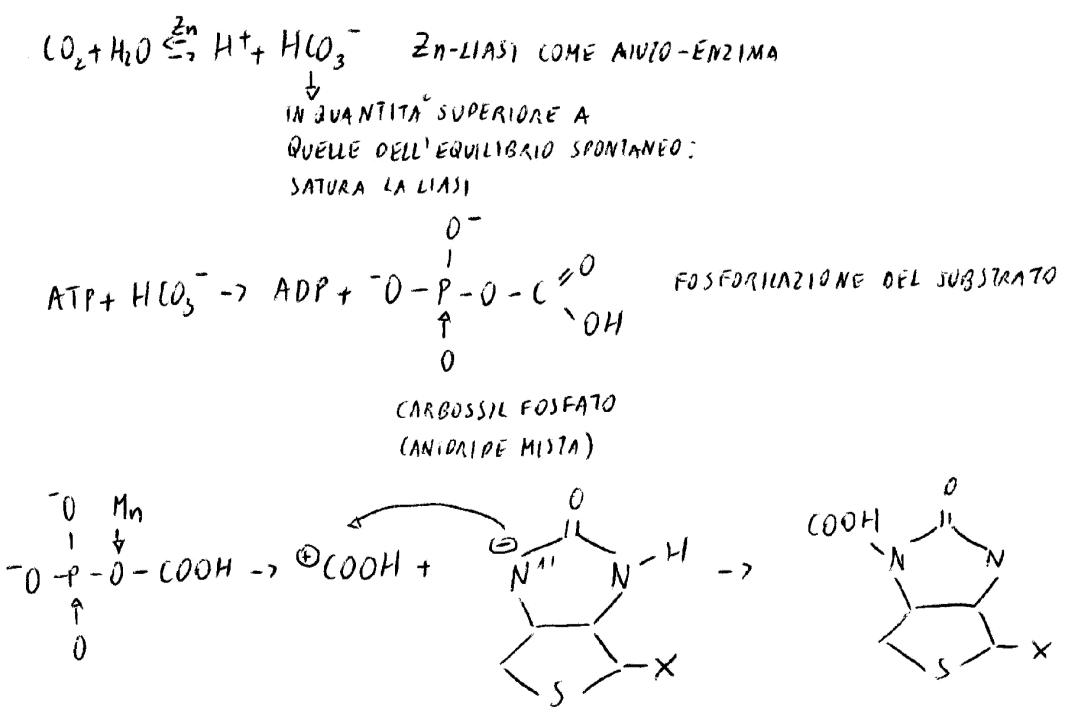 CO₂ + H₂O ⇆ H⁺ + HCO₃⁻ Zn-LIASI COME AIUTO-ENZIMA
Zn
IN QUANTITÀ SUPERIORE A
QUELLE DELL'EQUILIBRIO SPONTANEO:
SATURA LA LIASI
O⁻
ATP + HCO₃⁻ -> ADP + ⁻O-P-O-C=O FOSFORILAZIONE DEL SUBSTRATO
OH
O
CARBOSSIL FOSFATO
(ANIDRIDE MISTA)
⁻O Mn O O
COOH
⁻O-P-O-COOH -> ⊕COOH + ⊖ N1' N-H -> N N
O
S X S X